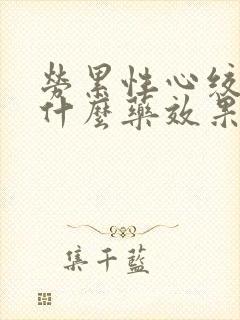 勞累性心絞
什麼藥效果
集千藍